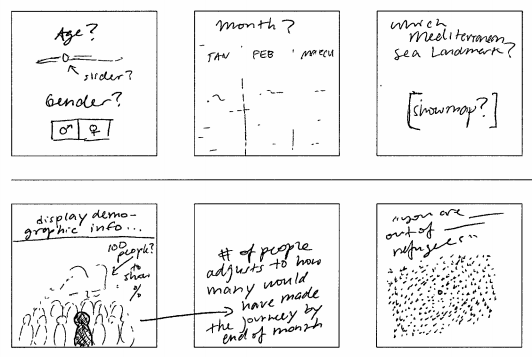 Age?
slider?
Gender?
♂ ♀
Month?
JAN FEB MARCH
which
Mediterranean
Sea Landmark?
[show map?]
display demo-
graphic info...
100
people?
to
show
%
# of people
adjusts to how
many would
have made
the journey by
end of month
"you are ____
out of ____
refugees"